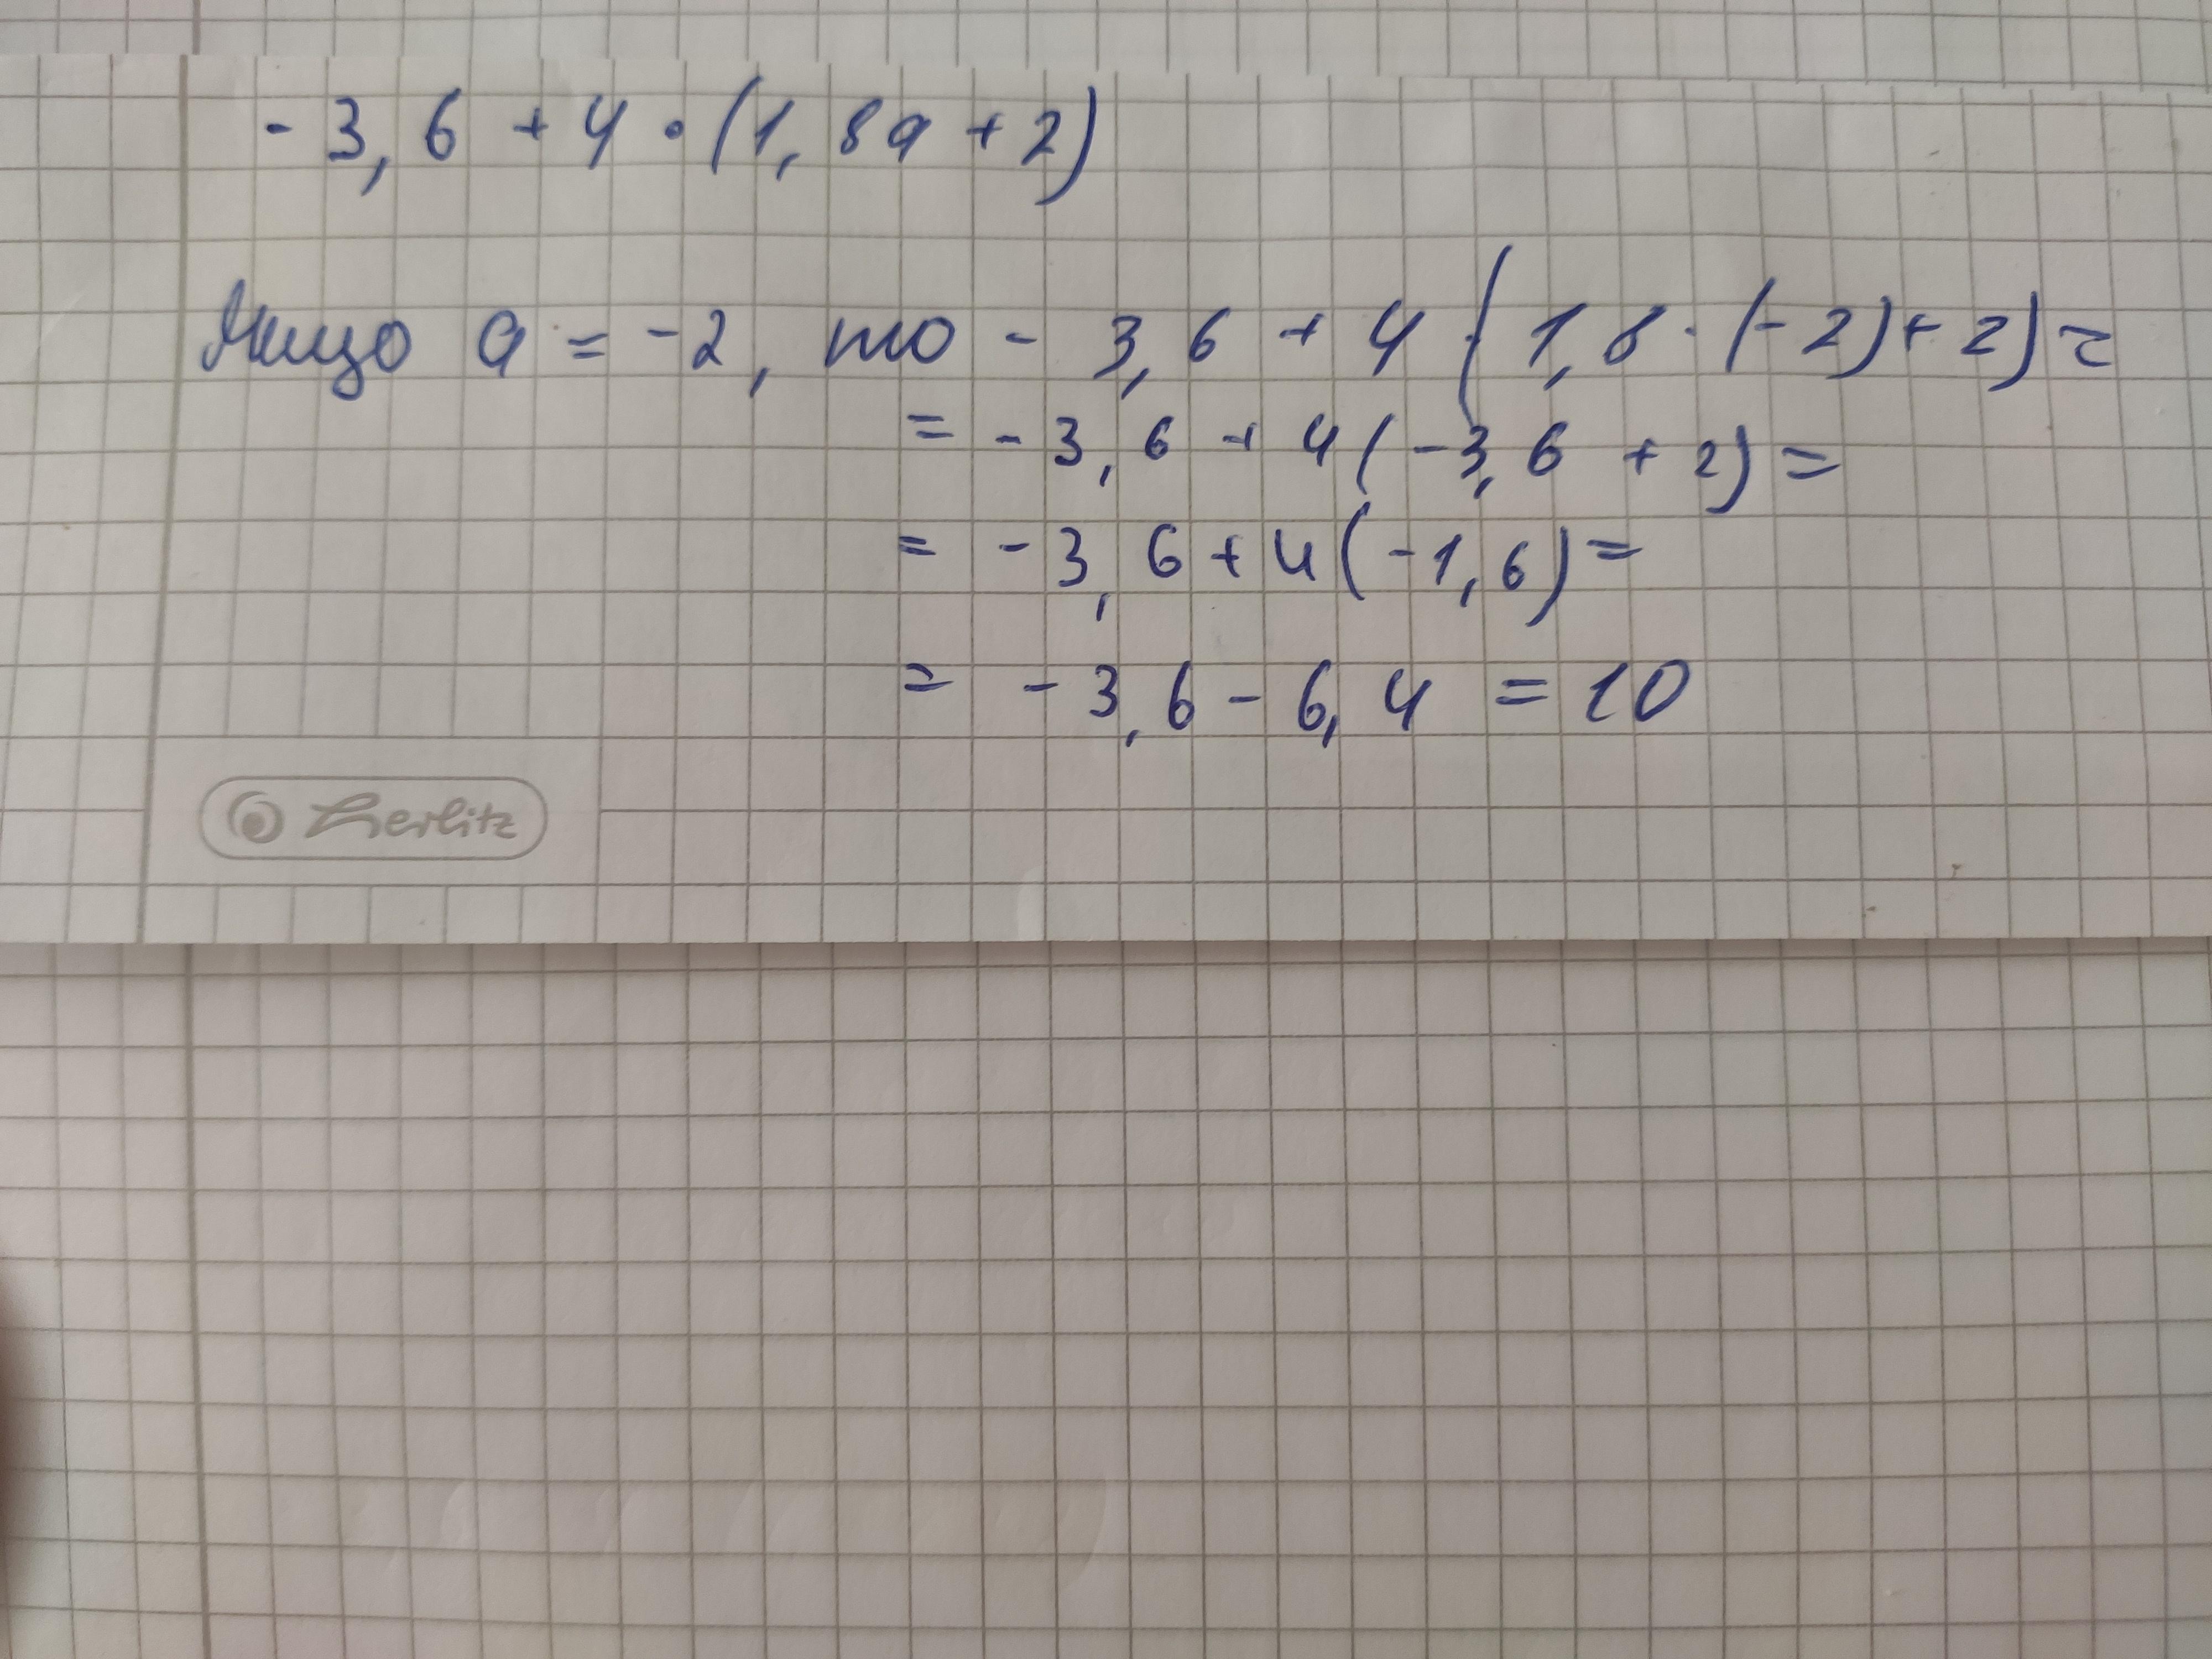 - 3,6 + 4 · (1,8a + 2)
Якщо a = -2, то - 3,6 + 4 · (1,8 · (-2) + 2) =
= - 3,6 + 4 (-3,6 + 2) =
= - 3,6 + 4 (-1,6) =
= - 3,6 - 6,4 = 10
Herlitz